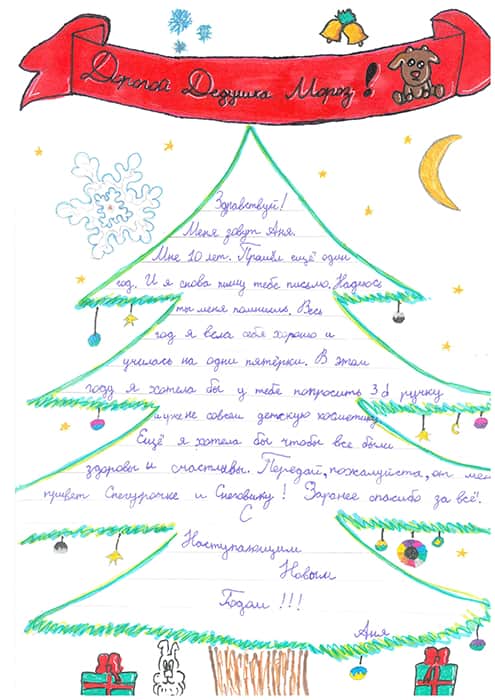 Дорогой Дедушка Мороз!
Здравствуй!
Меня зовут Аня.
Мне 10 лет. Прошёл ещё один
год. И я снова пишу тебе письмо. Надеюсь
ты меня помнишь. Весь
год я вела себя хорошо и
училась на одни пятёрки. В этом
году я хотела бы у тебя попросить 3d ручку
и уже не совсем детскую косметику.
Ещё я хотела бы чтобы все были
здоровы и счастливы. Передай, пожалуйста, от мен
привет Снегурочке и Снеговику! Заранее спасибо за всё.
С
Наступающим
Новым
Годом!!!
Аня